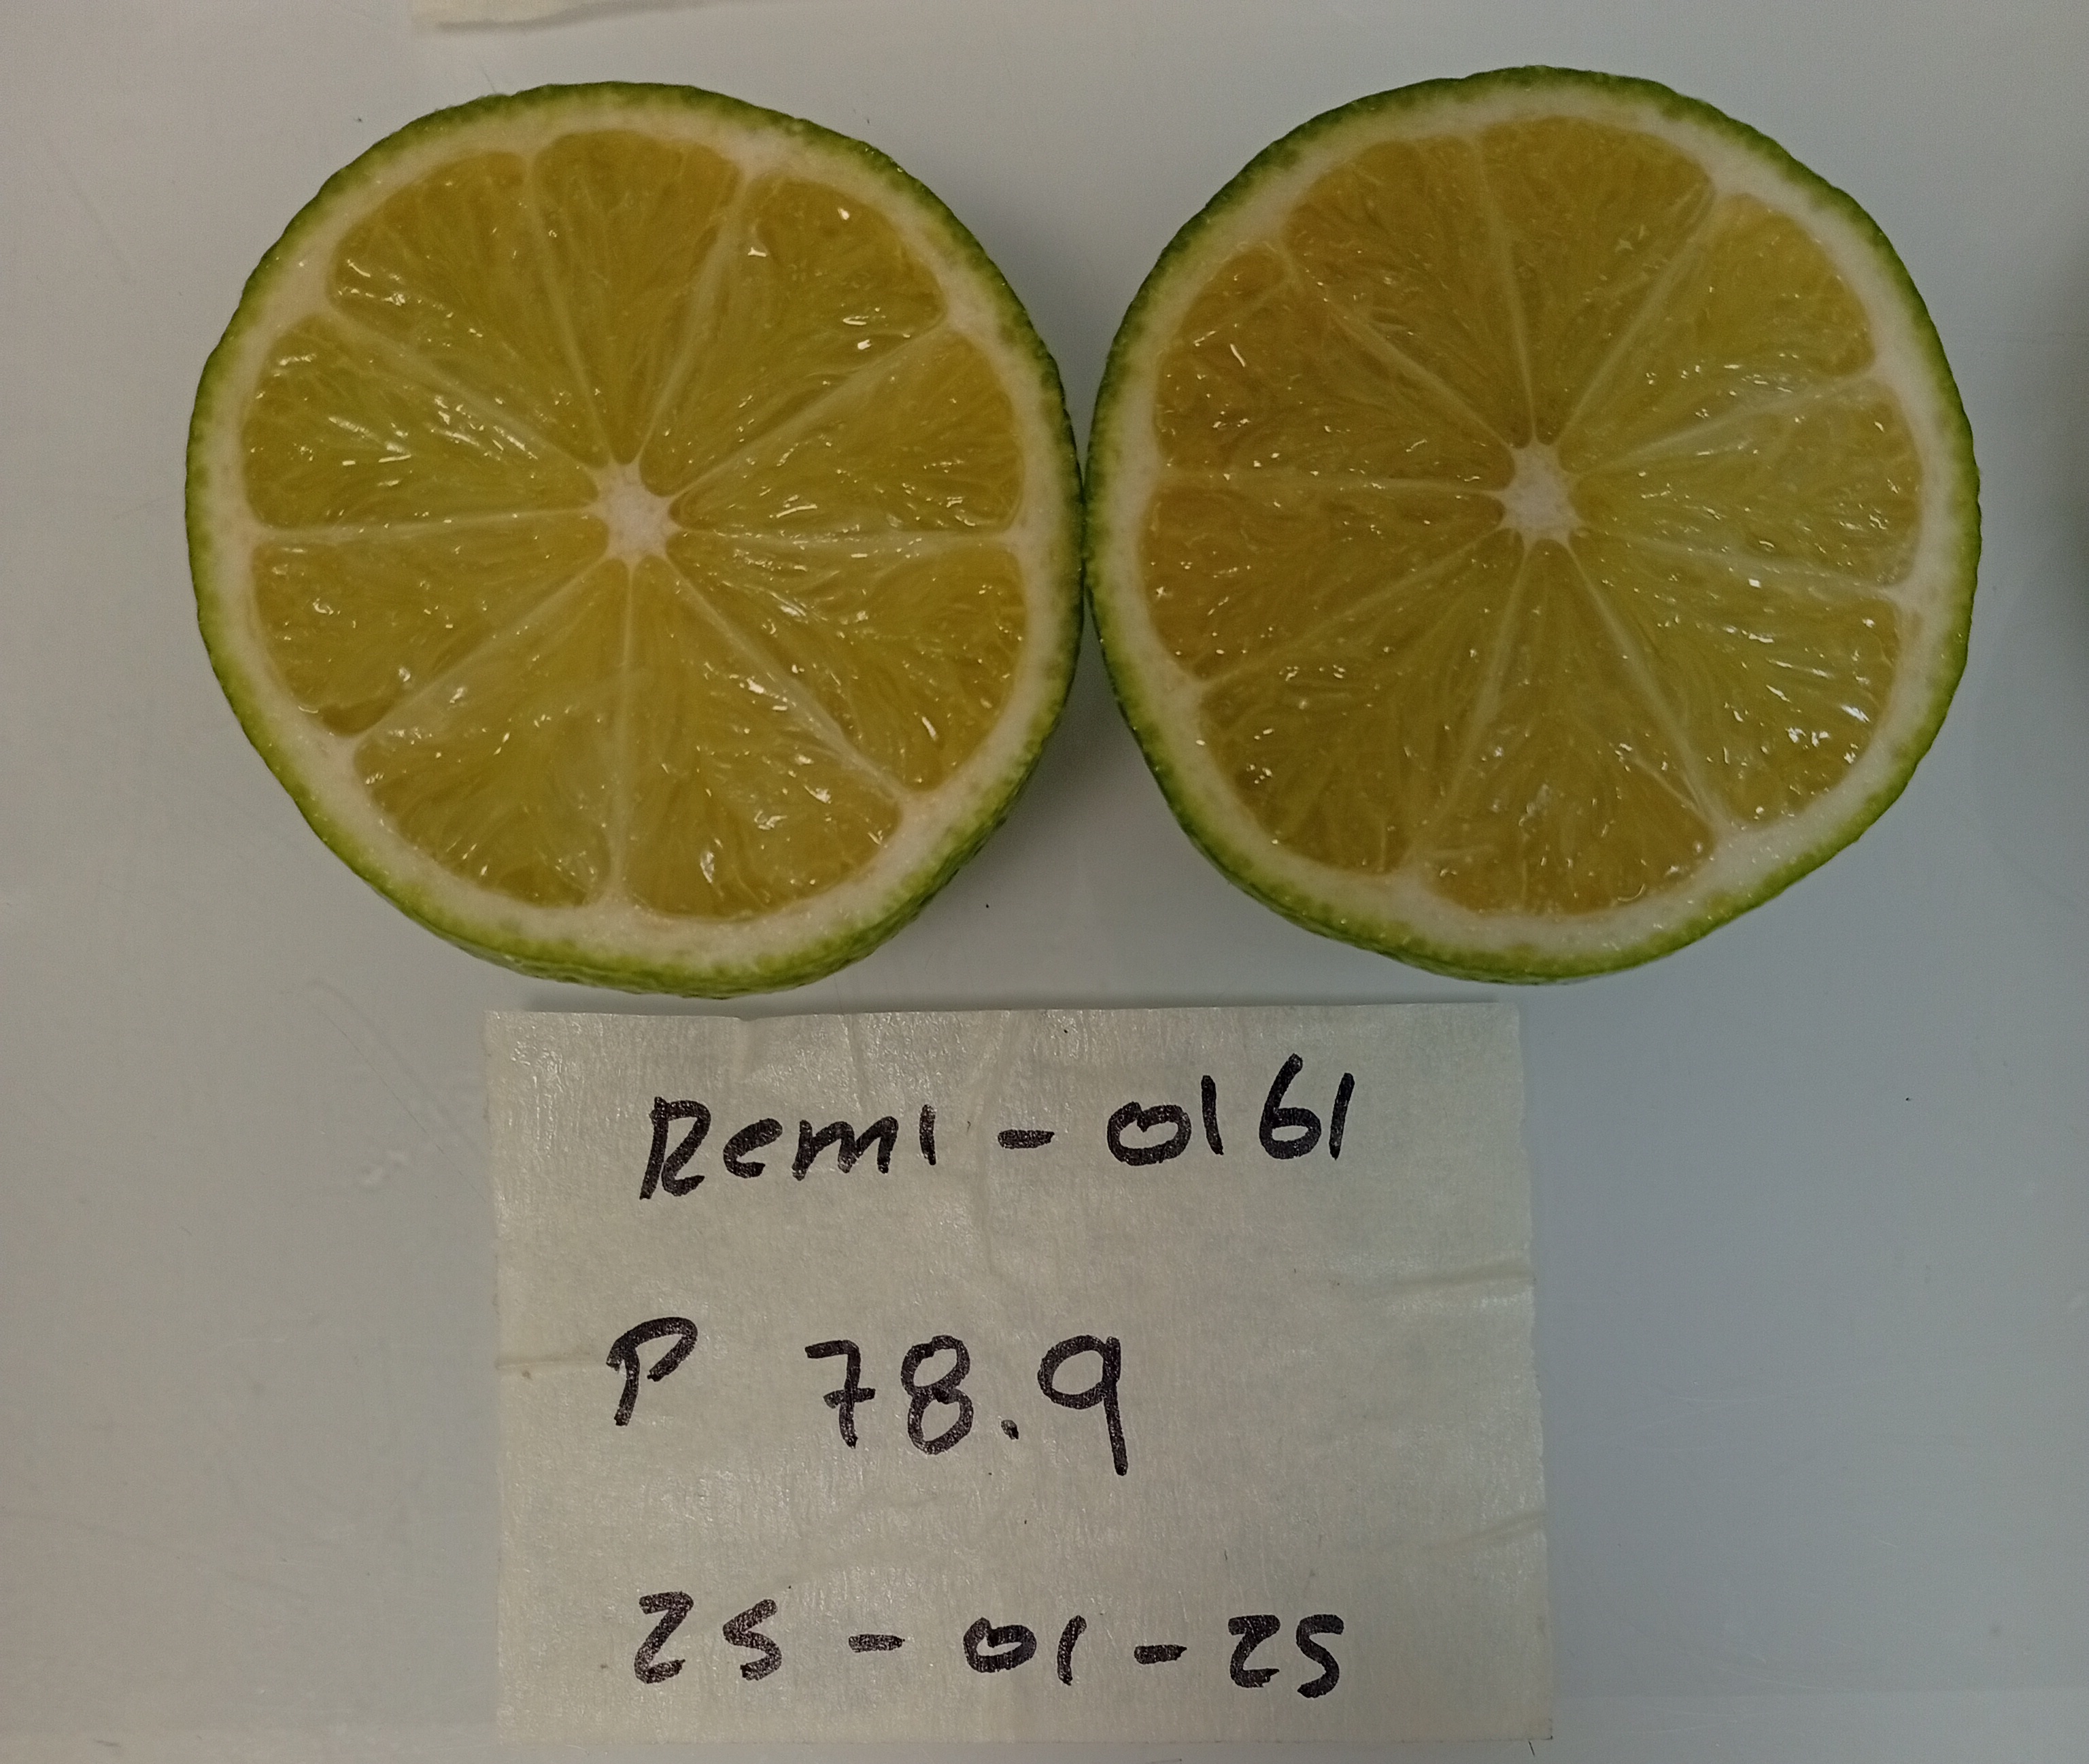 Remi - 0161
P 78.9
25-01-25